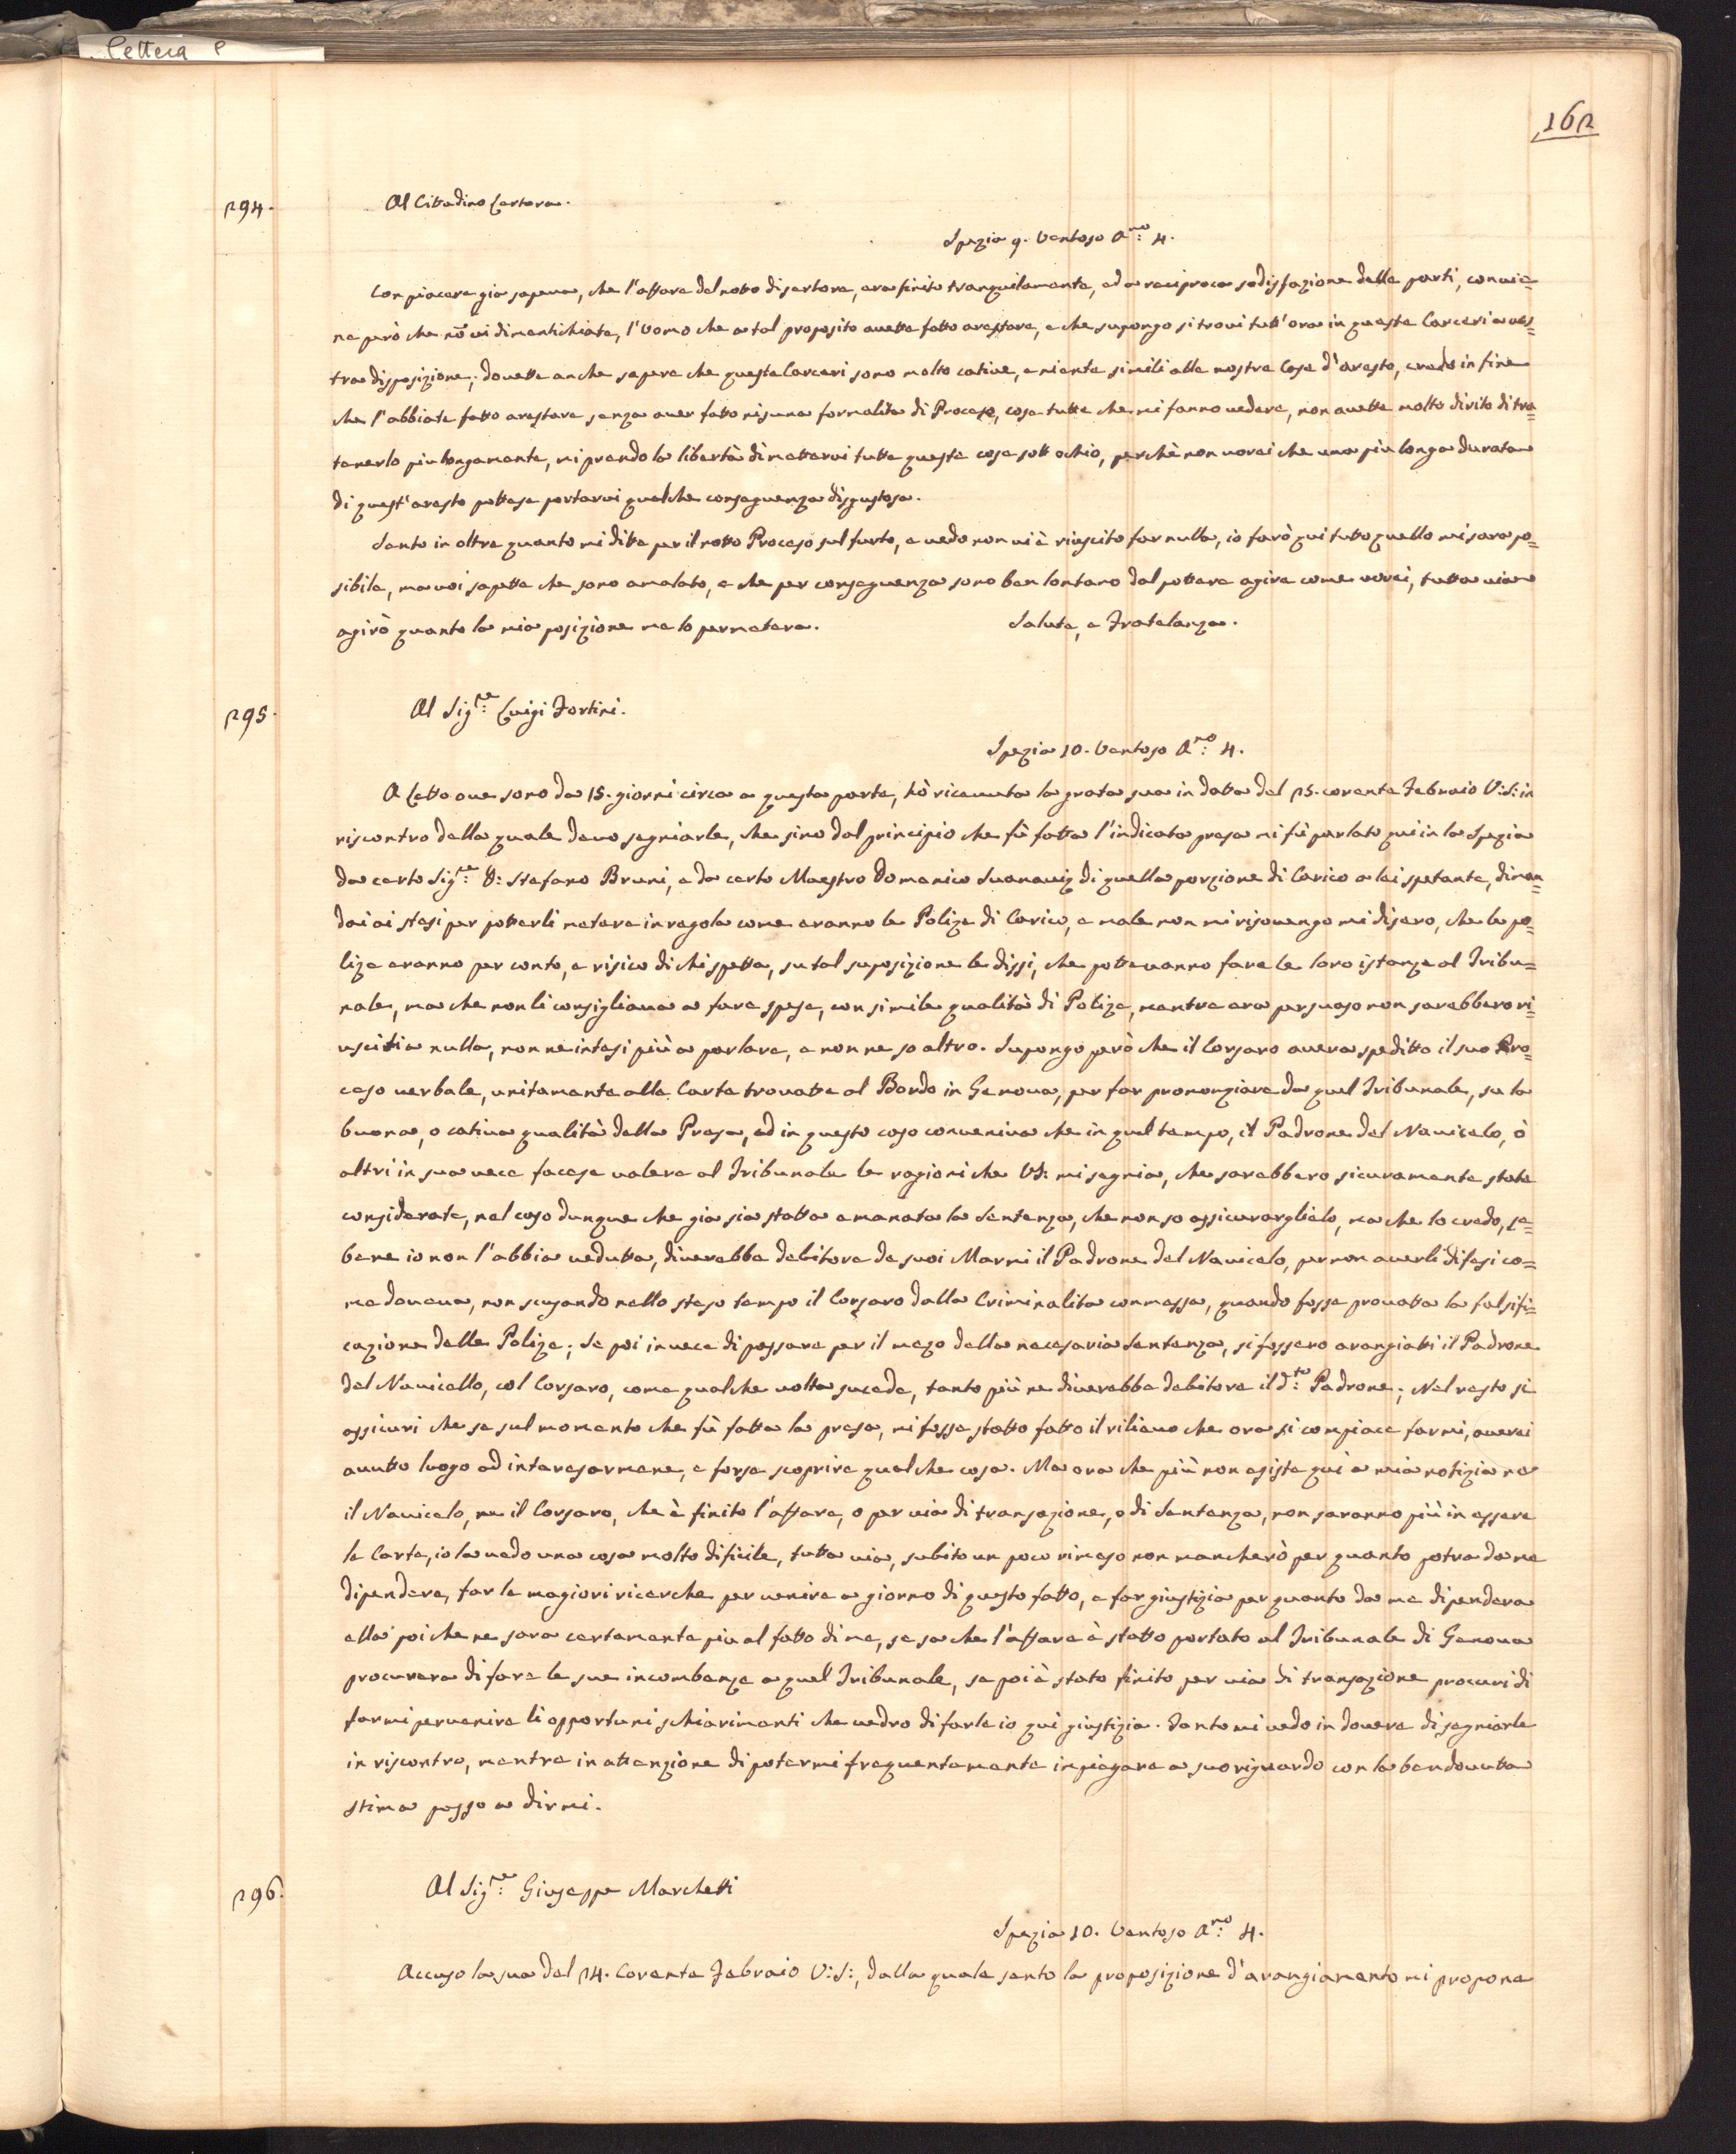 Lettera P
162
294.
Al Cittadino Cartera.
Spezia 9. Ventoso A.no 4.
Con piacere gia sapeva, che l'affare del notto disertore, era finito tranquilamente, ed a reciproca sodisfazione delle parti, convie=
ne però che nō vi dimentichiate, l'Uomo che a tal proposito avette fatto arestare, e che supongo si trovi tutt'ora in queste Carceri a vos=
tra disposizione; dovette anche sapere che queste Carceri sono molto cative, e niente simili alle nostre Case d'aresto, credo in fine
che l'abbiate fatto arestare senza aver fatto nisuna formalita di Proceso, cose tutte che mi fanno vedere, non avette molto dirito di tra=
tenerlo piu longamente, mi prendo la libertà di mettervi tutte queste cose sott ochio, perchè non vorei che una più longa durata
di quest'aresto pottese portarvi qualche conseguenza disgustosa.
Sento in oltre quanto mi ditte per il notto Proceso sul furto, e vedo non vi è riuscito far nulla, io farò qui tutto quello mi sara po=
sibile, ma voi sapette che sono amalato, e che per conseguenza sono ben lontano dal pottere agire come vorei, tutta via
agirò quanto la mia posizione me lo permetera. Salute, e Fratelanza.
295.
Al Sig.re Luigi Fortini.
Spezia 10. Ventoso A.no 4.
A Letto ove sono da 15. giorni circa a questa parte, hò ricevuta la grata sua in datta del 25. corente Febraio V:S: in
riscontro della quale devo segniarle, che sino dal principio che fù fatta l'indicata presa mi fù parlato qui in la Spezia
da certo Sig.re D: Stefano Bruni, e da certo Maestro Domenico Suanavig di quella porzione di Carico a lei spetante, diman=
dai ai stesi per poterli metere in regola come eranno le Polize di Carico, e male non mi risovengo mi disero, che le po=
lize eranno per conto, e risico di chi spetta, su tal suposizione le dissi, che pottevanno fare le loro istanze al Tribu=
nale, ma che non li consigliava a fare spese, con simile qualità di Polize, mentre era persuaso non sarebbero ri=
usciti a nulla, non ne intesi più a parlare, e non ne so altro. Supongo però che il Corsaro avera speditto il suo Pro=
ceso verbale, unitamente alle Carte trovatte al Bordo in Genova, per far prononziare da quel Tribunale, su la
buona, o cativa qualità della Presa, ed in questo caso conveniva che in quel tempo, il Padrone del Navicelo, ò
altri in sua vece facese valere al Tribunale le ragioni che VS: mi segnia, che sarebbero sicuramente state
considerate, nel caso dunque che gia sia statta emanata la Sentenza, che non so assicurarglielo, ma che lo credo, se=
bene io non l'abbia vedutta, diverebbe debitore de suoi Marmi il Padrone del Navicelo, per non averli difesi co=
me doveva, non scusando nello steso tempo il Corsaro dalla Criminalita commessa, quando fosse provatta la falsifi=
cazione delle Polize; Se poi invece di passare per il mezo della necesaria Sentenza, si fossero arangiatti il Padrone
del Navicello, col Corsaro, come qualche volta sucede, tanto più ne diverebbe debitore il d.to Padrone; Nel resto si
assicuri che se sul momento che fù fatta la presa, mi fosse statto fatto il rilievo che ora si compiace farmi, averei
avutto luogo ad interesarmene, e forse scoprire qualche cosa. Ma ora che più non esiste qui a mia notizia ne
il Navicelo, ne il Corsaro, che è finito l'affare, o per via di transazione, o di Sentenza, non saranno più in essere
le Carte, io la vedo una cosa molto dificile, tutta via, subito un poco rimeso non mancherò per quanto potra da me
dipendere, far le magiori ricerche per venire a giorno di questo fatto, e far giustizia per quanto da me dipendera
ella poi che ne sara certamente piu al fatto di me, se sa che l'affare è statto portato al Tribunale di Genova
procurera di fare le sue incombenze a quel Tribunale, se poi è stato finito per via di transazione procuri di
farmi pervenire li opportuni schiarimenti che vedro di farle io qui giustizia. Tanto mi vedo in dovere di segniarle
in riscontro, mentre in attenzione di potermi frequentemente impiegare a suo riguardo con la ben dovutta
stima passo a dirmi.
296.
Al Sig.re Giuseppe Marchetti
Spezia 10. Ventoso A.no 4.
Accuso la sua del 24. Corente Febraio V:S:, dalla quale sento la proposizione d'arangiamento mi propone